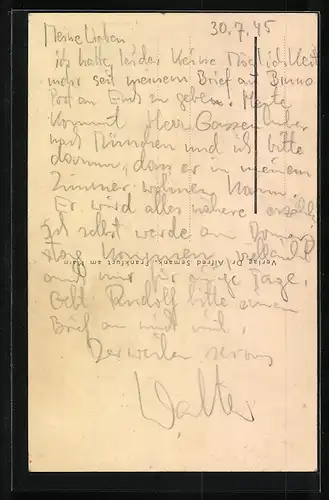 30.7.45
Meine Lieben
ich hatte leider keine Möglichkeit
mehr seit meinem Brief an Bruno
Post an Euch zu geben. Heute
kommt Herr Gassen
nach München und ich bitte
darum, dass er in meinem
Zimmer wohnen kann.
Er wird alles nähere erzählen
Ich selbst werde am
kommen,
nur für einige Tage.
Gebt Rudolf bitte einen
Brief an mich mit.
Derweilen servus
Walter
Verlag Dr. Alfred Serauky, Frankfurt am Main